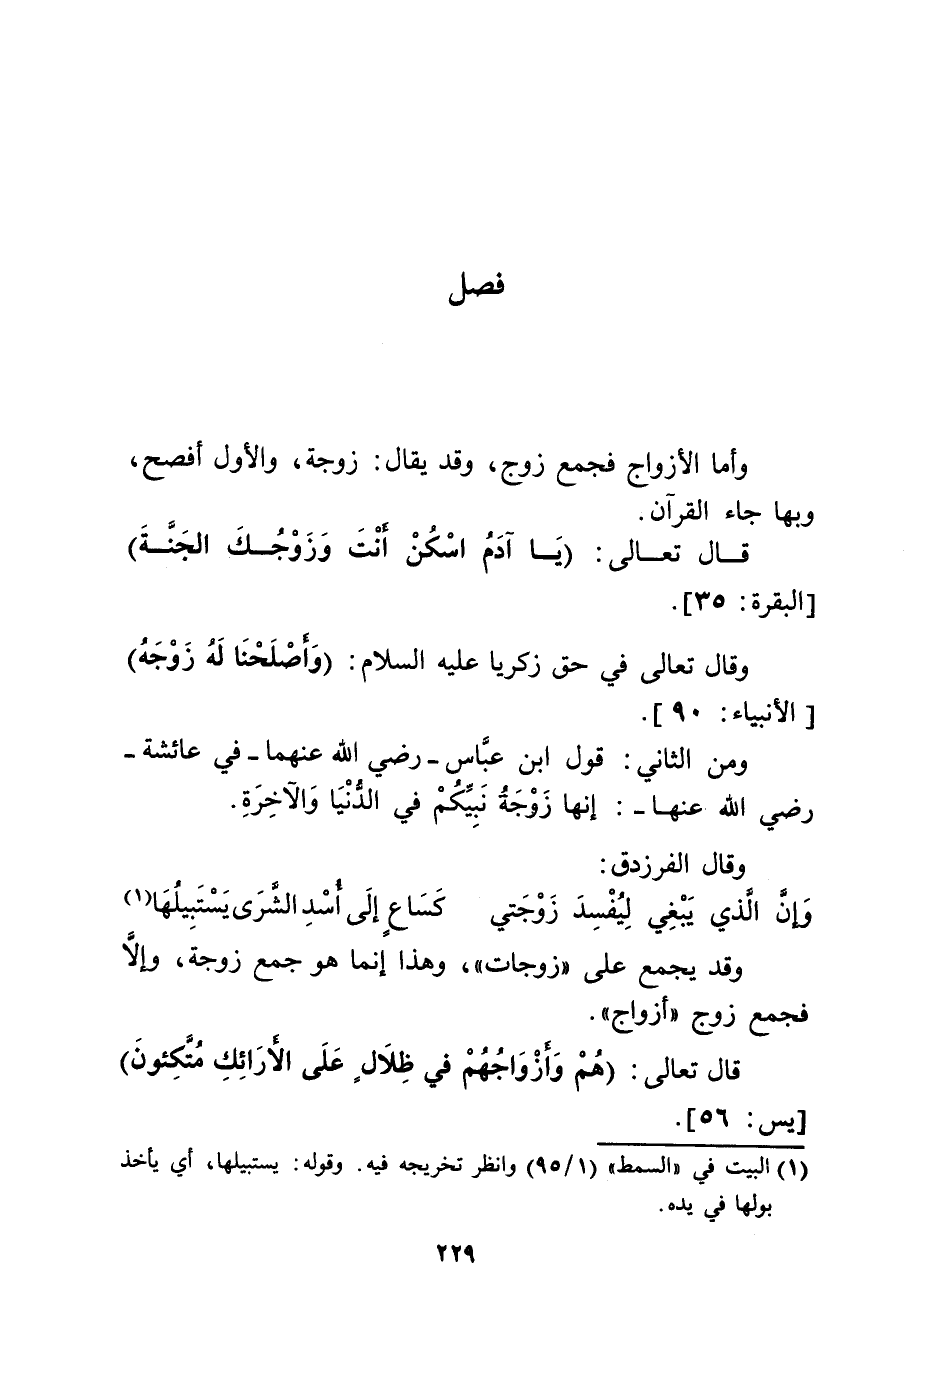 فصل
وأما الأزواج فجمع زوج، وقد يقال: زوجة، والأول أفصح،
وبها جاء القرآن.
قـال تعـالى: (يَـا آدَمُ اسْكُنْ أَنْتَ وَزَوْجُـكَ الجَنَّـةَ)
[البقرة: ٣٥].
وقال تعالى في حق زكريا عليه السلام: (وَأَصْلَحْنَا لَهُ زَوْجَهُ)
[ الأنبياء: ٩٠ ].
ومن الثاني: قول ابن عبَّاس ـ رضي الله عنهما ـ في عائشة ـ
رضي الله عنهـا ـ : إنها زَوْجَةُ نَبِيِّكُمْ في الدُّنْيَا وَالآخِرَةِ.
وقال الفرزدق:
وَإنَّ الَّذي يَبْغِي لِيُفْسِدَ زَوْجَتي كَسَاعٍ إلَى أُسْدِ الشَّرَى يَسْتَبِيلُهَا(١)
وقد يجمع على «زوجات»، وهذا إنما هو جمع زوجة، وإلاَّ
فجمع زوج «أزواج».
قال تعالى: (هُمْ وَأَزْوَاجُهُمْ في ظِلَالٍ عَلَى الأَرَائِكِ مُتَّكِئونَ)
[يس: ٥٦].
(١) البيت في «السمط» (٩٥/١) وانظر تخريجه فيه. وقوله: يستبيلها، أي يأخذ
بولها في يده.
٢٢٩